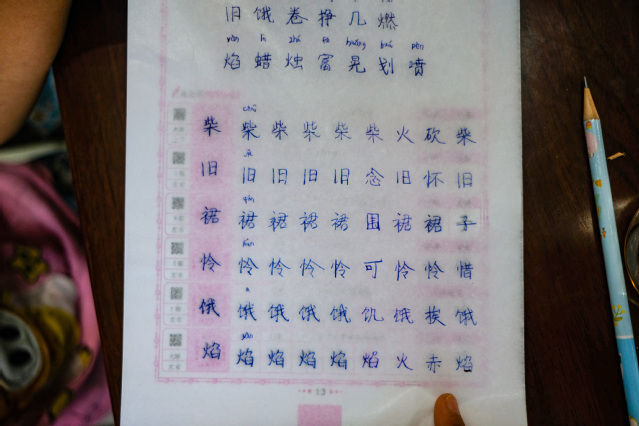 旧 饿 卷 挣 几 燃
焰 蜡 烛 富 晃 划 喷
柴 柴 柴 柴 柴 柴 火 砍 柴
旧 旧 旧 旧 旧 念 旧 怀 旧
裙 裙 裙 裙 裙 围 裙 裙 子
怜 怜 怜 怜 怜 可 怜 怜 惜
饿 饿 饿 饿 饿 饥 饿 挨 饿
焰 焰 焰 焰 焰 焰 火 赤 焰
13